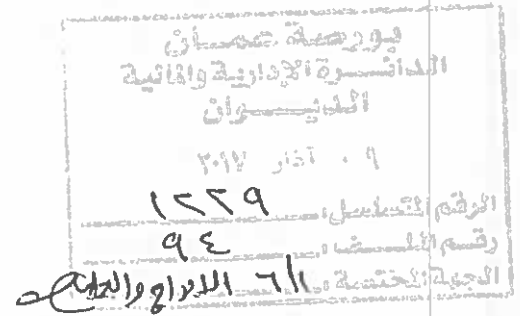 بورصة عمان
الدائرة الإدارية والمالية
الديوان
٠٩ آذار ٢٠١٧
الرقم المتسلسل ١٢٢٩
رقم الملف ٩٤
الجهة المختصة ٦/١ الادراج والعمليات